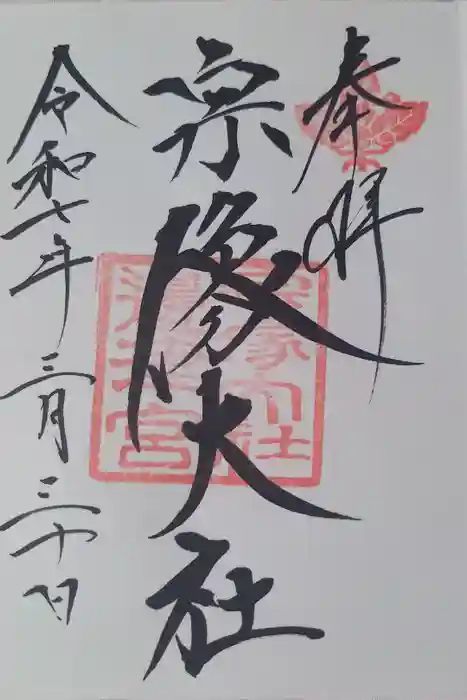 奉拝
宗像大社
令和七年三月三十日
宗像大社
邊津宮